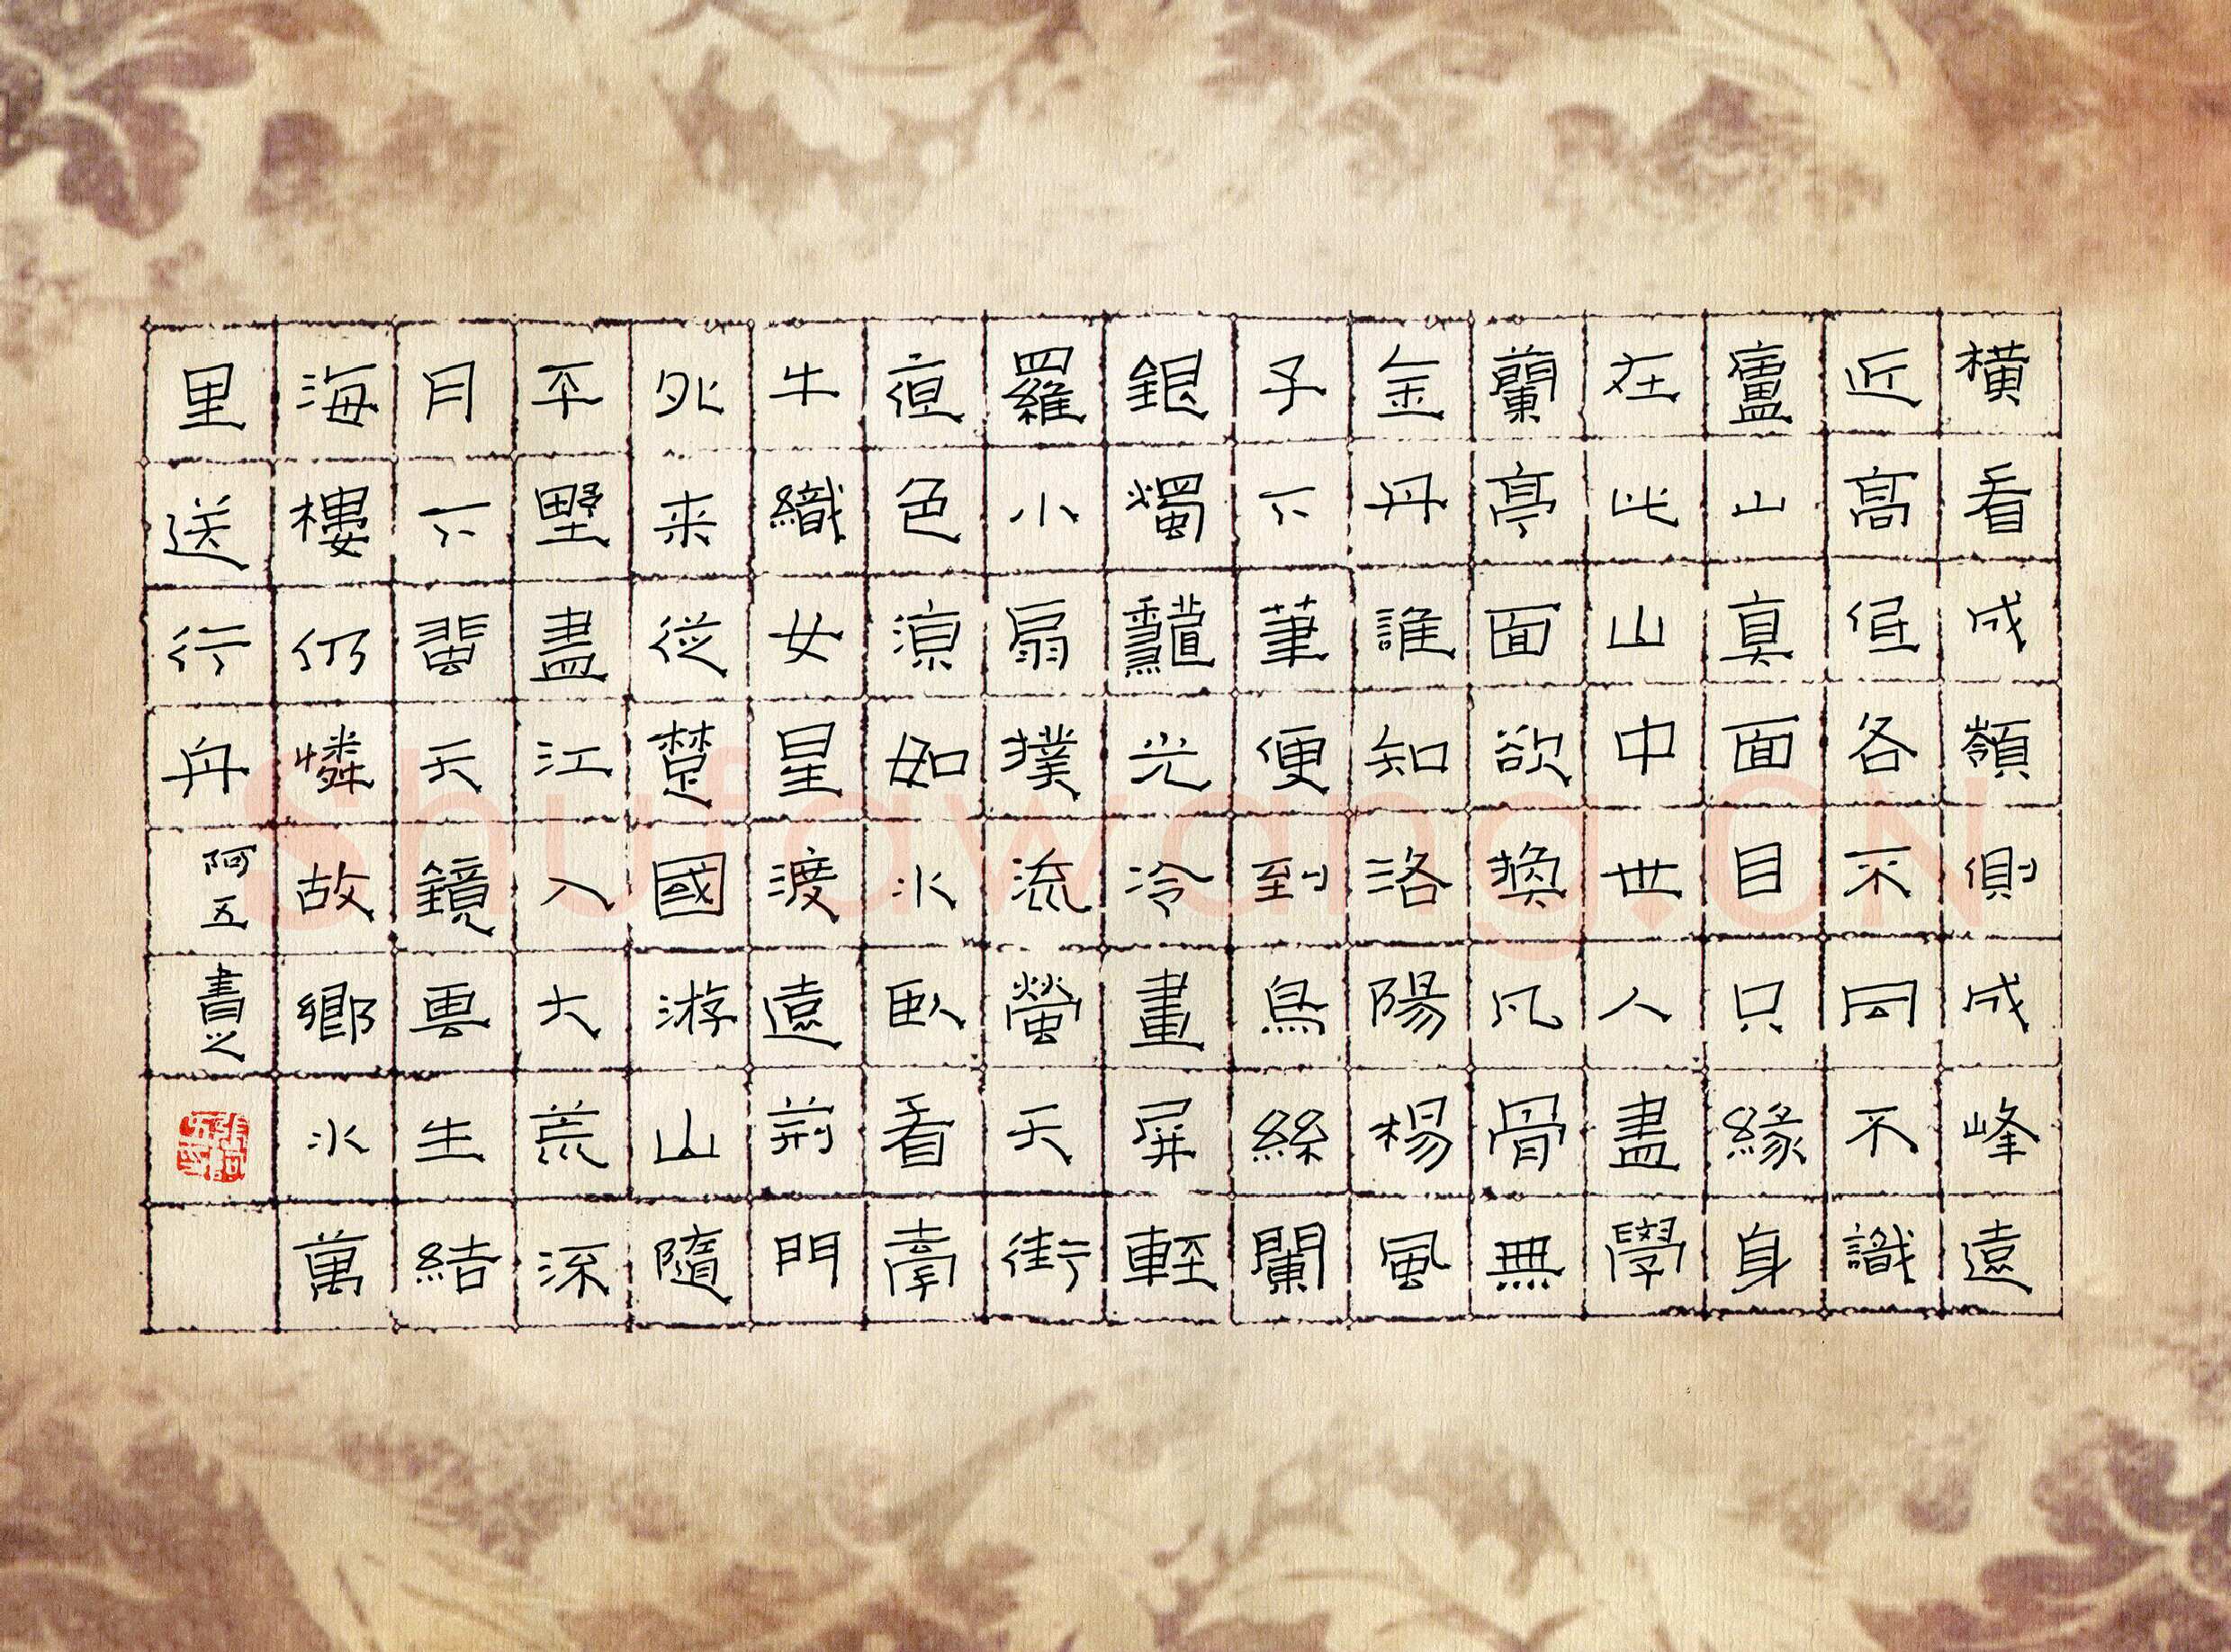 横看成嶺側成峰遠
近高低各不同不識
廬山真面目只緣身
在此山中世人盡學
蘭亭面欲換凡骨無
金丹誰知洛陽楊風
子下筆便到烏絲闌
銀燭龝光冷畫屏輕
羅小扇撲流螢天街
夜色涼如水臥看牽
牛織女星渡遠荆門
外来從楚國游山隨
平墅盡江入大荒流
月下蜚天鏡雲生結
海樓仍憐故鄉水萬
里送行舟
阿五書之
shufawang.CN